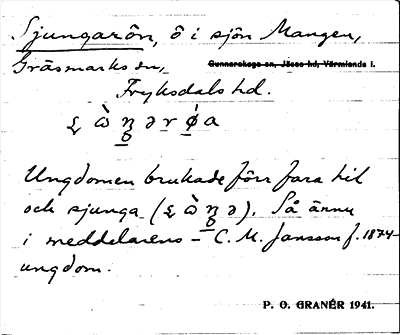 Sjungarön, ö i sjön Mangen,
Gräsmarks sn, Gunnarskogs sn, Jösse hd, Värmlands l.
Fryksdals hd.
Ungdomen brukade förr fara hit
och sjunga. Så ännu
i meddelarens – C. M. Jansson f. 1874 –
ungdom.
P. O. GRANÉR 1941.